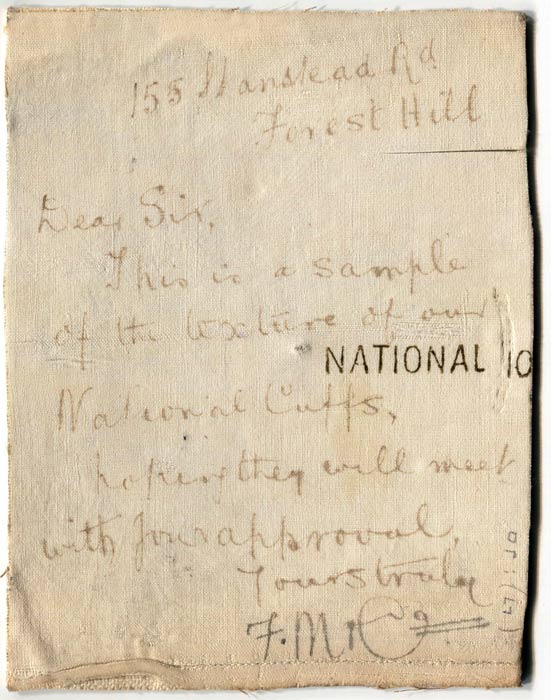 155 Stanstead Rd
Forest Hill
Dear Sir,
This is a sample
of the texture of our
NATIONAL 10
National Cuffs,
hoping they will meet
with your approval,
Yours truly
F. M & Co